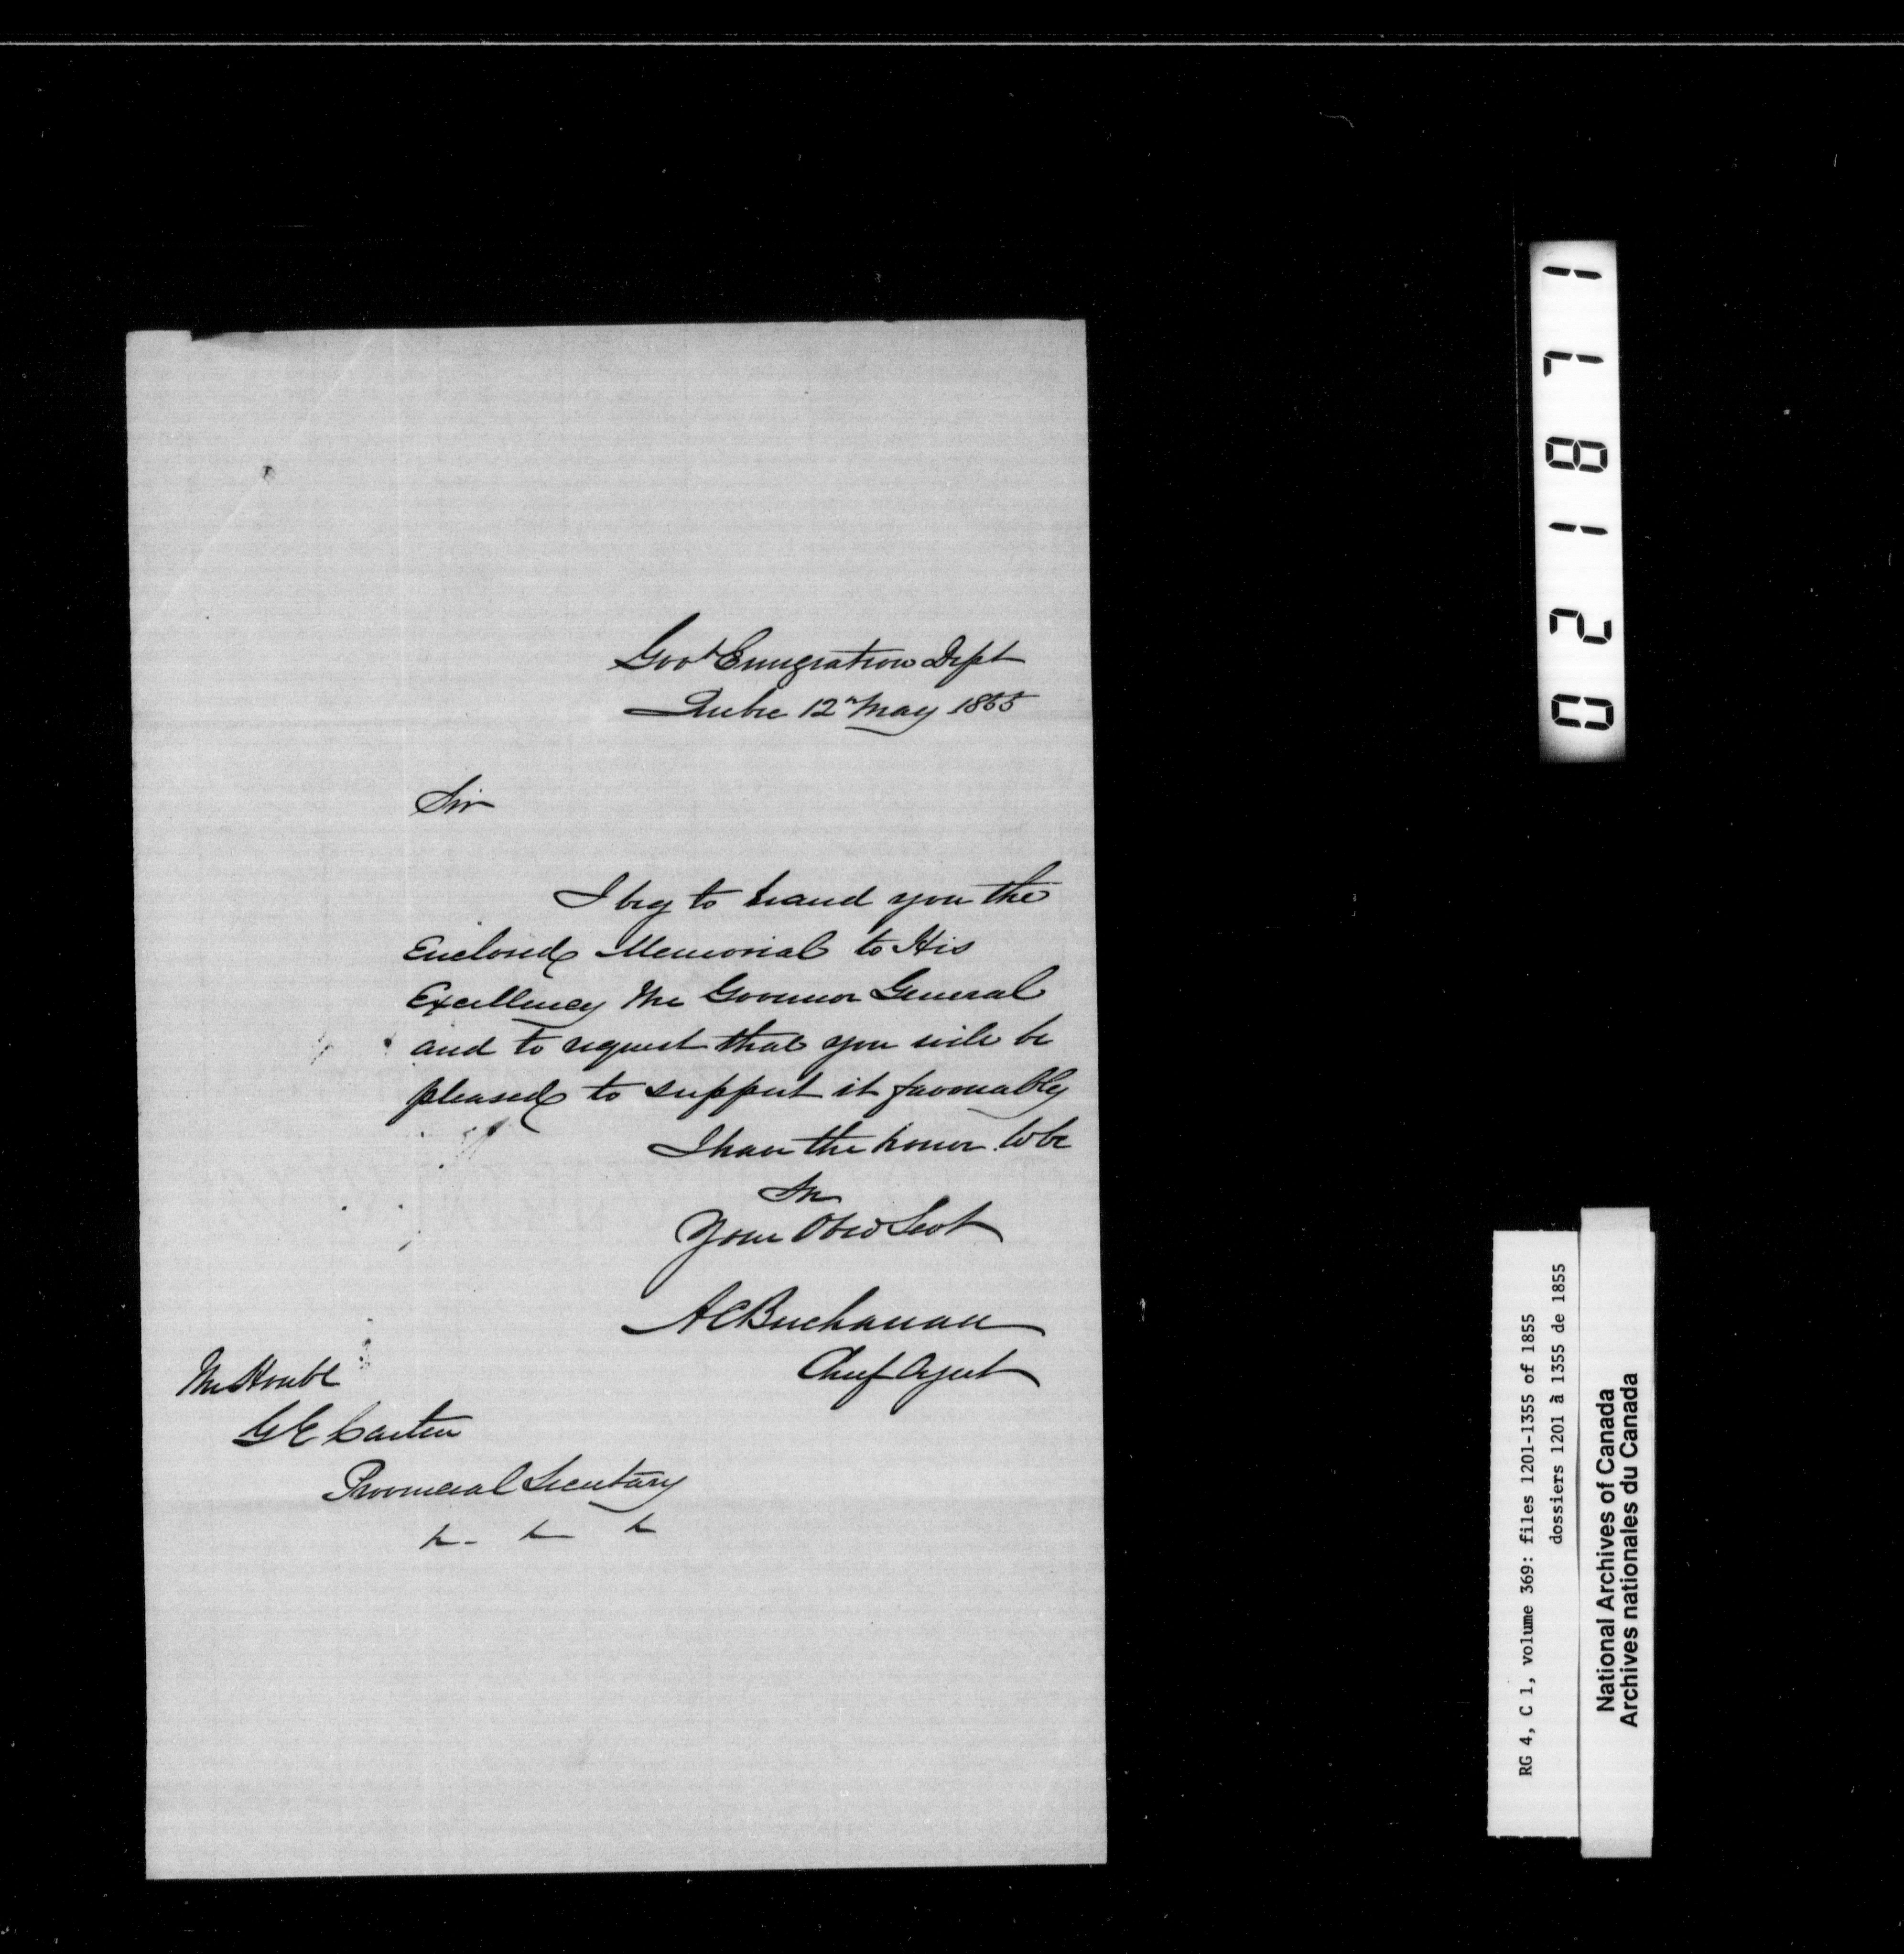 Govt Emigration Dept
Quebec 12th May 1855
Sir
I beg to hand you the
Enclosed Memorial to His
Excellency the Governor General
and to request that you will be
pleased to support it favourably
I have the honor to be
Sir
Your Obed Servt
A C Buchanan
Chief Agent
The Honble
G E Cartier
Provincial Secretary
021871
RG 4, C 1, volume 369: files 1201-1355 of 1855
dossiers 1201 à 1355 de 1855
National Archives of Canada
Archives nationales du Canada